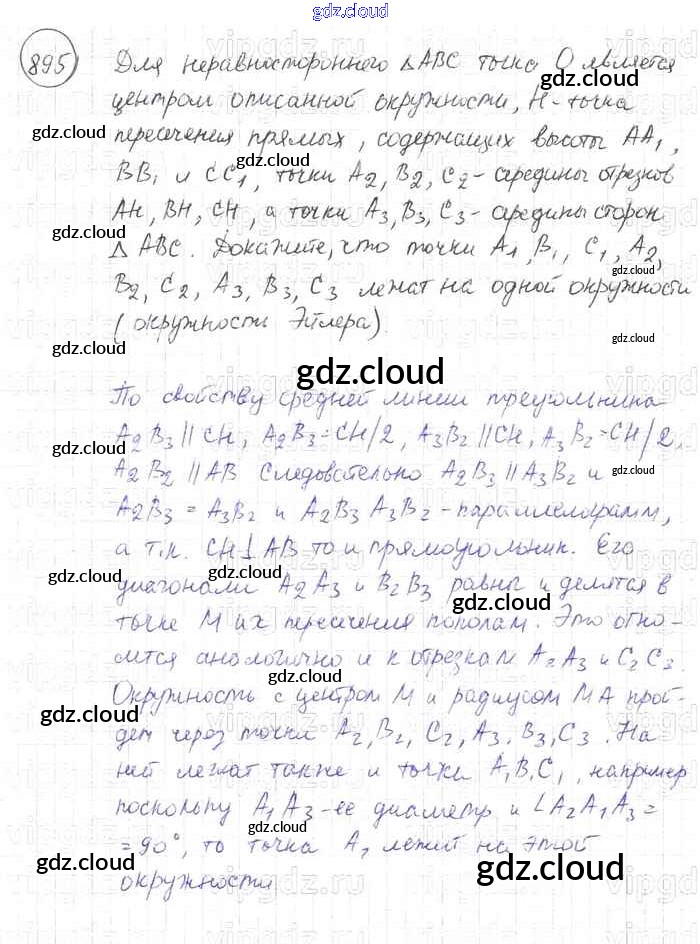 gdz.cloud
895 Для неравностороннего △ABC точка O является
центром описанной окружности, H - точка
пересечения прямых, содержащих высоты AA1,
BB1 и CC1, точки A2, B2, C2 - середины отрезков
AH, BH, CH, а точки A3, B3, C3 - середины сторон
△ ABC. Докажите, что точки A1, B1, C1, A2,
B2, C2, A3, B3, C3 лежат на одной окружности
(окружности Эйлера).
По свойству средней линии треугольника
A2B3 || CH, A2B3=CH/2, A3B2 || CH, A3B2=CH/2,
A2B2 || AB Следовательно A2B3 || A3B2 и
A2B3 = A3B2 и A2B3A3B2 - параллелограмм,
а т.к. CH⊥AB то и прямоугольник. Его
диагонали A2A3 и B2B3 равны и делятся в
точке M их пересечения пополам. Это отно-
сится аналогично и к отрезкам A2A3 и C2C3.
Окружность с центром M и радиусом MA прой-
дет через точки A2, B2, C2, A3, B3, C3. На
ней лежат также и точки A1B1C1, например
поскольку A1A3 - ее диаметр и ∠A2A1A3=
=90°, то точка A1 лежит на этой
окружности